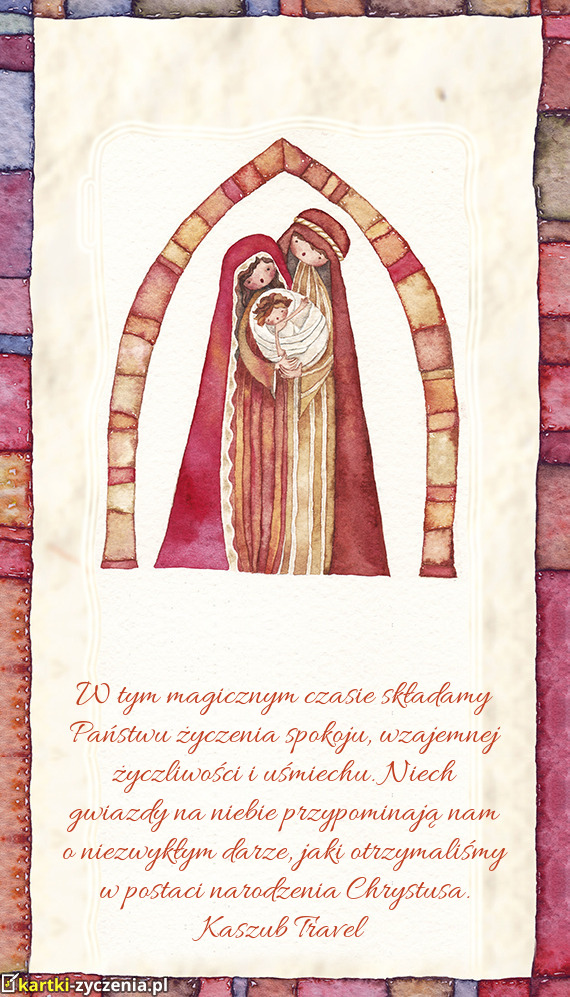 W tym magicznym czasie składamy
Państwu życzenia spokoju, wzajemnej
życzliwości i uśmiechu. Niech
gwiazdy na niebie przypominają nam
o niezwykłym darze, jaki otrzymaliśmy
w postaci narodzenia Chrystusa.
Kaszub Travel
kartki-zyczenia.pl